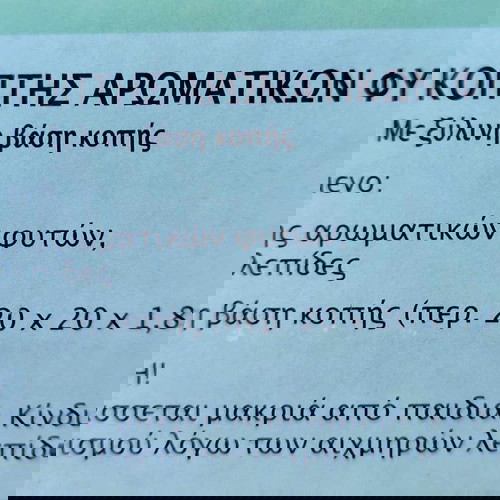 ΑΡΩΜΑΤΙΚΩΝ ΦΥ ΚΟΠ
Με ξύλινη βάση κοπής
ς αρωματικών φυτών,
λεπίδες
20 x 20 x 1,8 βάση κοπής (περ.
Η!
σσεται μακριά από παιδιά. Κίνδυ
ισμού λόγω των αιχμηρών λεπίδ